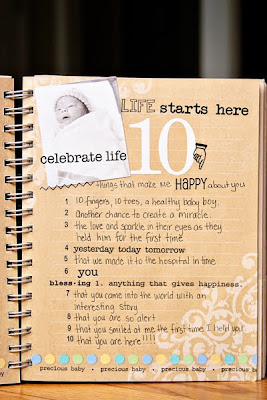 LIFE starts here
celebrate life
10
things that make me HAPPY about you
1 10 fingers, 10 toes, a healthy baby boy.
2 Another chance to create a miracle.
3 the love and sparkle in their eyes as they
held him for the first time
4 yesterday today tomorrow
5 that we made it to the hospital in time
6 you
bless·ing 1. anything that gives happiness.
7 that you came into the world with an
interesting story
8 that you are so alert
9 that you smiled at me the first time I held you
10 that you are here!!!!
precious baby · precious baby · precious baby · precious baby